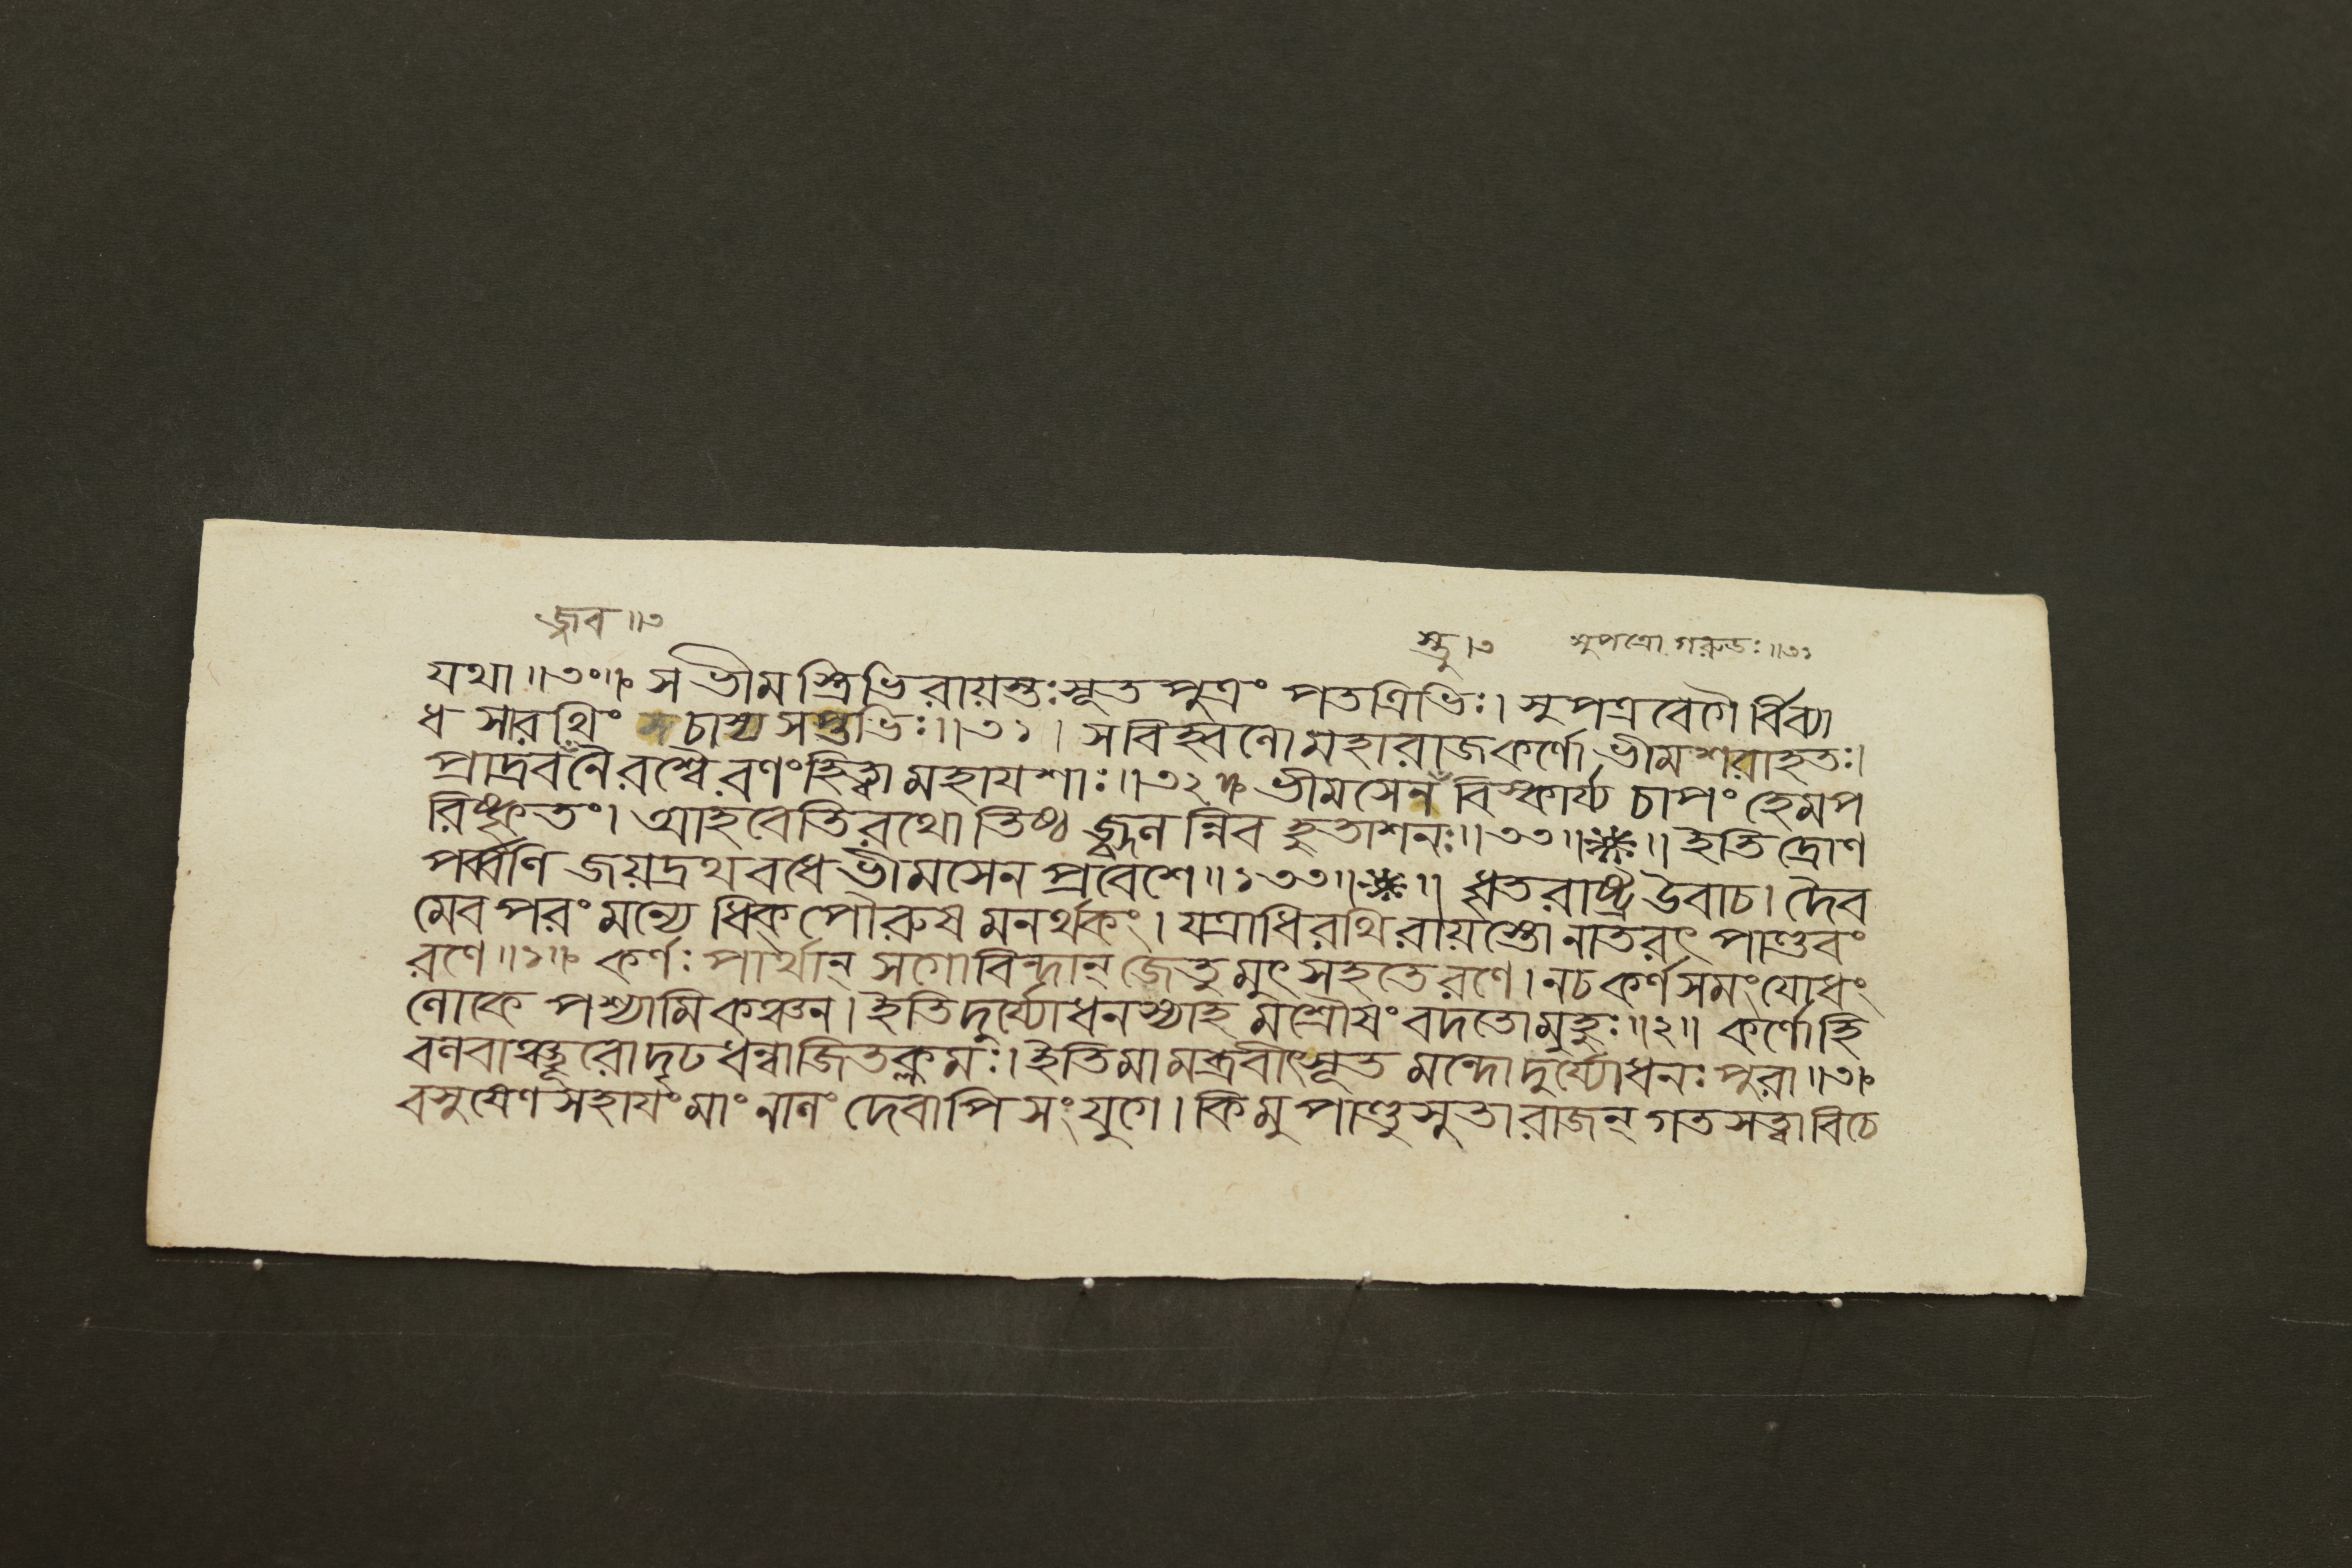 জ্বব॥৩
স্তু।৩ সুপত্রো গরুডঃ॥৩১
যথা॥৩০॥ স ভীম স্ত্রিভি রায়স্তঃ সূত পুত্রং পতত্রিভিঃ। সুপত্র বেগৈ র্বিব্যা
ধ সারথিং চাস্য সপ্তভিঃ॥৩১। স বিহ্বলো মহারাজ কর্ণো ভীম শরাহতঃ।
প্রাদ্রবলৈ রশ্বৈ রণং হিত্বা মহাযশাঃ॥৩২॥ ভীমসেন বিস্ফার্য্য চাপং হেমপ
রিষ্কৃতং। আহবেতিরথো তিষ্ঠ জ্জ্বল ন্নিব হুতাশনঃ॥৩৩॥ ॥ ইতি দ্রোণ
পর্ব্বণি জয়দ্রথ বধে ভীমসেন প্রবেশে॥১৩৩॥ ॥ ধৃতরাষ্ট্র উবাচ। দৈব
মেব পরং মন্যে ধিক্ পৌরুষ মনর্থকং। যত্রাধিরথি রায়স্তো নাতরৎ পাণ্ডবং
রণে॥১॥ কর্ণঃ পার্থান্ সগোবিন্দান্ জেতু মুৎসহতে রণে। নচ কর্ণ সমং যোধং
লোকে পশ্যামি কঞ্চন। ইতি দুর্য্যোধনস্যাহ মশ্রৌষং বদতো মুহুঃ॥২॥ কর্ণো হি
বলবাঞ্ছূরো দৃঢ ধন্বা জিতক্লমঃ। ইতি মা মব্রবীৎ সূত মন্দো দুর্য্যোধনঃ পুরা॥৩॥
বসুষেণ সহায়ং মাং নালং দেবাপি সংযুগে। কিমু পাণ্ডুসুতা রাজন্ গত সত্ত্বা বিচে